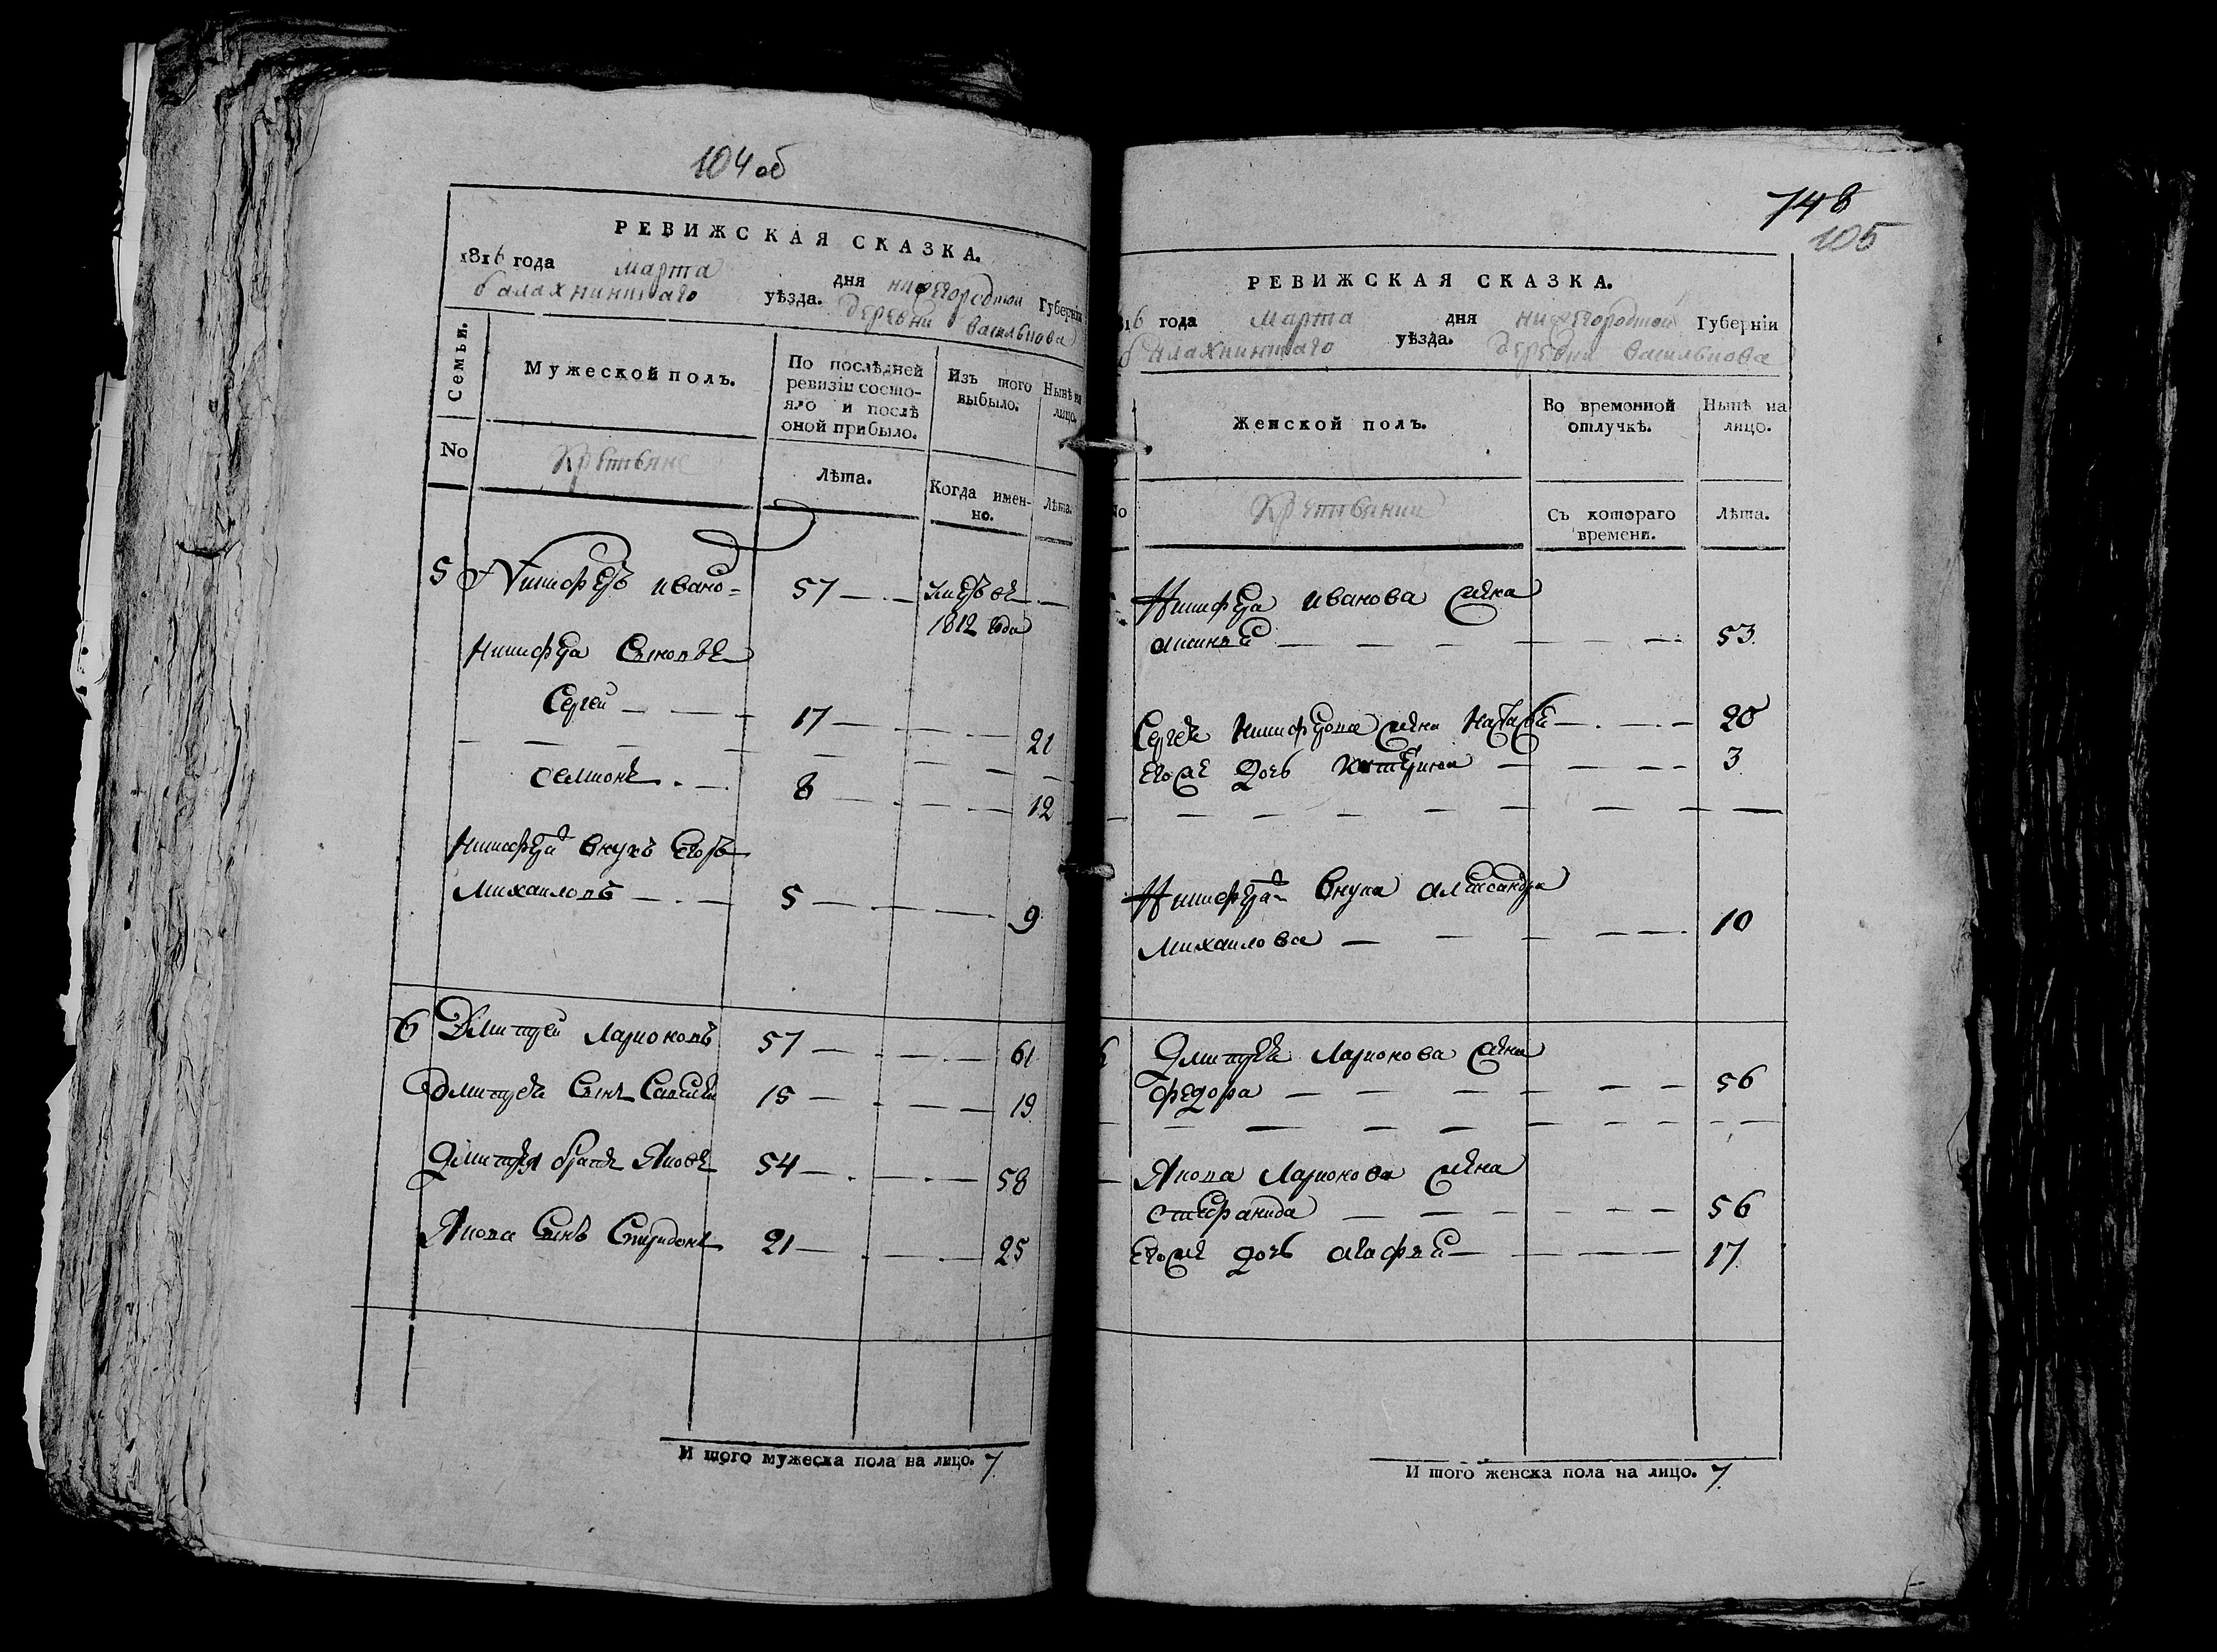 104 об
РЕВИЖСКАЯ СКАЗКА.
1816 года Марта дня нижегородской Губерніи
балахнинскаго уѣзда. деревни василькова
Семьи.
Мужеской полъ.
По послѣдней ревизіи состояло и послѣ оной прибыло.
Изъ того выбыло.
Нынѣ на лицо.
No
Крестьяне
Лѣта.
Когда именно.
Лѣта.
5 Никифоръ ивано= 57 умеръ въ
1812 года
Никифора Сыновья
Сергей 17 21
семионъ 8 12
Никифора внукъ Егоръ
Михаиловъ 5 9
6 Дмитрей Ларионовъ 57 61
Дмитрея Сынъ Савелей 15 19
Дмитрея братъ Яковъ 54 58
Якова Сынъ Спиридонъ 21 25
И того мужеска пола на лицо. 7
748
105
РЕВИЖСКАЯ СКАЗКА.
1816 года Марта дня нижегородской Губерніи
балахнинскаго уѣзда. деревни василькова
Женской полъ.
Во времонной отлучкѣ.
Нынѣ на лицо.
No
Съ котораго времени.
Лѣта.
Никифора иванова жена
53
Сергея Никифорова жена Наталья 20
Егоже дочь 3
Никифора внука александра
Михаилова 10
6 Дмитрея Ларионова жена
федора 56
Якова Ларионова жена
стефанида 56
Егоже дочь агафья 17
И того женска пола на лицо. 7